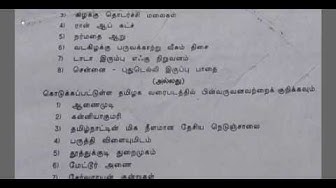 3) கிழக்கு தொடர்ச்சி மலைகள்
4) ரான் ஆப் கட்ச்
5) நர்மதை ஆறு
6) வடகிழக்கு பருவக்காற்று வீசும் திசை
7) டாடா இரும்பு எஃகு நிறுவனம்
8) சென்னை - புதுடெல்லி இருப்பு பாதை
(அல்லது)
கொடுக்கப்பட்டுள்ள தமிழக வரைபடத்தில் பின்வருவனவற்றைக் குறிக்கவும்.
1) ஆனைமுடி
2) கன்னியாகுமரி
3) தமிழ்நாட்டின் மிக நீளமான தேசிய நெடுஞ்சாலை
4) பருத்தி விளையுமிடம்
5) தூத்துக்குடி துறைமுகம்
6) மேட்டூர் அணை
7) சேர்வராயன் குன்றுகள்